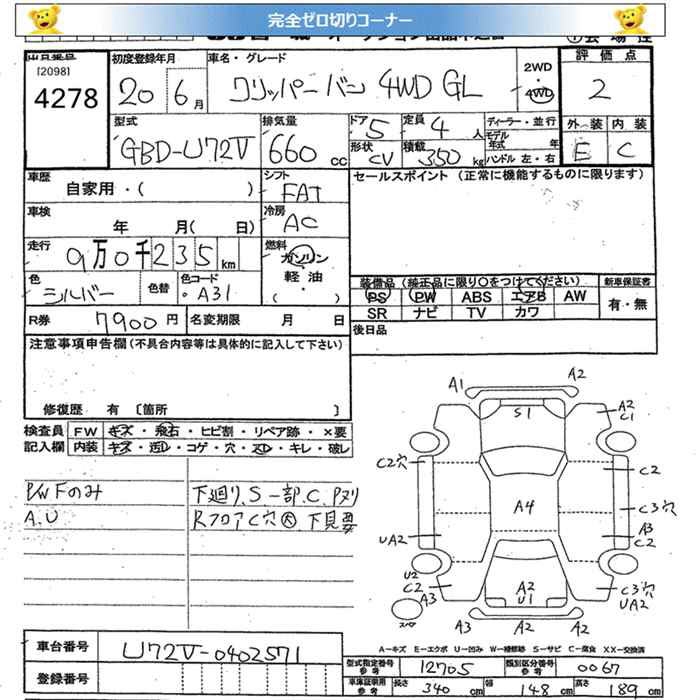 完全ゼロ切りコーナー
出品番号
[2098]
4278
初度登録年月
20 6月
車名・グレード
クリッパーバン 4WD GL
2WD
・
4WD
評価点
2
型式
GBD-U72V
排気量
660 cc
ドア 5
定員 4 人
形状 CV
積載 350 kg
ディーラー・並行
モデル
年式 年
ハンドル 左・右
外装
E
内装
C
車歴
自家用・( )
シフト
FAT
セールスポイント (正常に機能するものに限ります)
車検
年 月( 日)
冷房
AC
走行
9万0千235km
燃料
ガソリン
軽油
( ・ )
色
シルバー
色替
色コード
・A31
装備品 (純正品に限り○をつけてください)
PS PW ABS エアB AW
SR ナビ TV カワ
新車保証書
有・無
R券
7900円
名変期限 月 日
後日品
注意事項申告欄(不具合内容等は具体的に記入して下さい)
修復歴 有 〔箇所 〕
検査員 FW キズ・飛石・ヒビ割・リペア跡・×要
記入欄 内装 キズ・汚レ・コゲ・穴・スレ・キレ・破レ
P/WFのみ
A.U
下廻り.S一部.C.Pヌリ
RフロアC穴大 下見要
A1 A2
S1
A2
C1
C2穴
C2
A4
C3穴
UA2
A3
C2
U2
C2
A3
A2
U1
C3穴
UA2
スペア
A3 A2 A2
A-キズ E-エクボ U-凹み W-補修跡 S-サビ C-腐食 XX-交換済
車台番号
U72V-0402571
登録番号
型式指定番号
参考
12705
類別区分番号
参考
0067
車庫証明用
参考
長さ 340 cm
幅 148 cm
高さ 189 cm